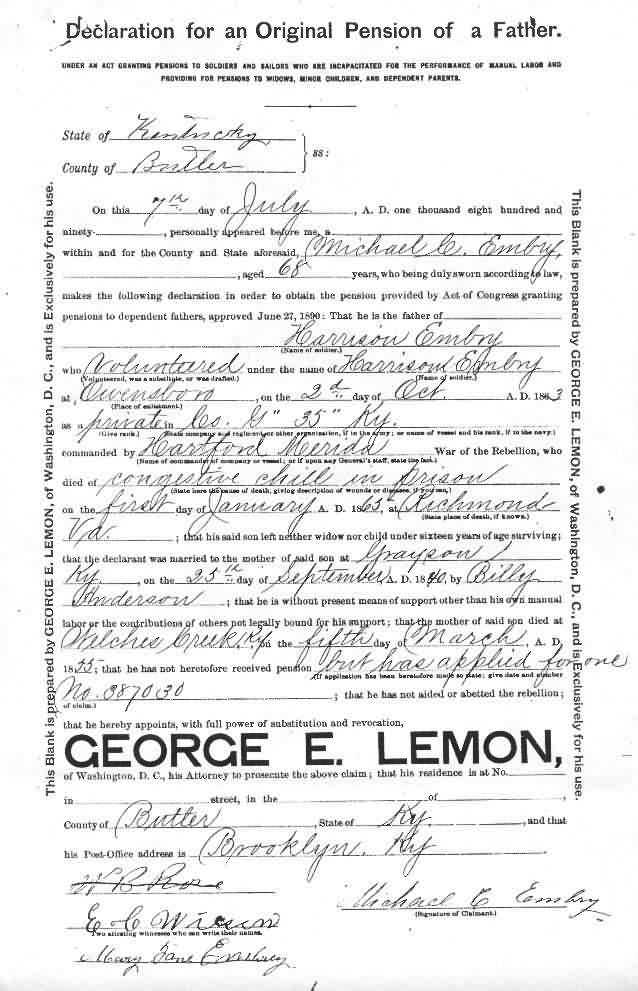 Declaration for an Original Pension of a Father.
UNDER AN ACT GRANTING PENSIONS TO SOLDIERS AND SAILORS WHO ARE INCAPACITATED FOR THE PERFORMANCE OF MANUAL LABOR AND
PROVIDING FOR PENSIONS TO WIDOWS, MINOR CHILDREN, AND DEPENDENT PARENTS.
State of Kentucky
County of Butler
ss:
On this 7th day of July, A. D. one thousand eight hundred and
ninety-, personally appeared before me, a
within and for the County and State aforesaid, Michael C. Embry,
, aged 68 years, who being duly sworn according to law,
makes the following declaration in order to obtain the pension provided by Act of Congress granting
pensions to dependent fathers, approved June 27, 1890: That he is the father of
Harrison Embry
(Name of soldier.)
who Voluntared under the name of Harrison Embry
(Volunteered, was a substitute, or was drafted.) (Name of soldier.)
at Owensboro, on the 2d day of Oct. A. D. 1863
(Place of enlistment.)
as a private in Co. G" 35" Ky.
(Give rank.) (State company and regiment, or other organization, if in the army; or name of vessel and his rank, if in the navy.)
commanded by Hartford Meriad War of the Rebellion, who
(Name of commander of company or vessel; or if upon any General's staff, state the fact.)
died of congestive chill in prison
(State here the cause of death, giving description of wounds or diseases, if you can.)
on the first day of January A. D. 1865, at Richmond
(State place of death, if known.)
Va. ; that his said son left neither widow nor child under sixteen years of age surviving;
that the declarant was married to the mother of said son at Grayson
Ky. , on the 25th day of September A. D. 1840, by Billy
Anderson ; that he is without present means of support other than his own manual
labor or the contributions of others not legally bound for his support; that the mother of said son died at
Welches Creek, Ky on the fifth day of March, A. D.
1855; that he has not heretofore received pension but has applied for one
(If application has been heretofore made so state; give date and number
No. 387030 ; that he has not aided or abetted the rebellion;
of claim.)
that he hereby appoints, with full power of substitution and revocation,
GEORGE E. LEMON,
of Washington, D. C., his Attorney to prosecute the above claim; that his residence is at No.
in street, in the of ,
County of Butler, State of Ky. , and that
his Post-Office address is Brooklyn. Ky
W B Rose
Michael C Embry
(Signature of Claimant.)
E. C. Wilson
Two attesting witnesses who can write their names.
Mary Jane Embrey
This Blank is prepared by GEORGE E. LEMON, of Washington, D. C., and is Exclusively for his use.
This Blank is prepared by GEORGE E. LEMON, of Washington, D. C., and is Exclusively for his use.